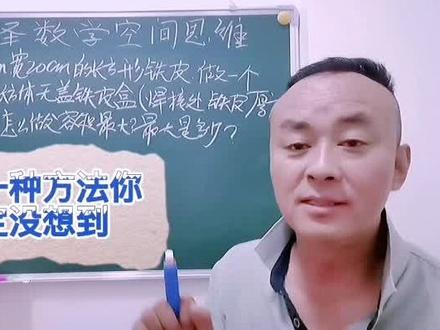 泽数学空间思维
宽20cm的长方形铁皮做一个
方体无盖铁皮盒(焊接处铁皮厚
怎么做容积最大?最大是多少?
一种方法你
没想到